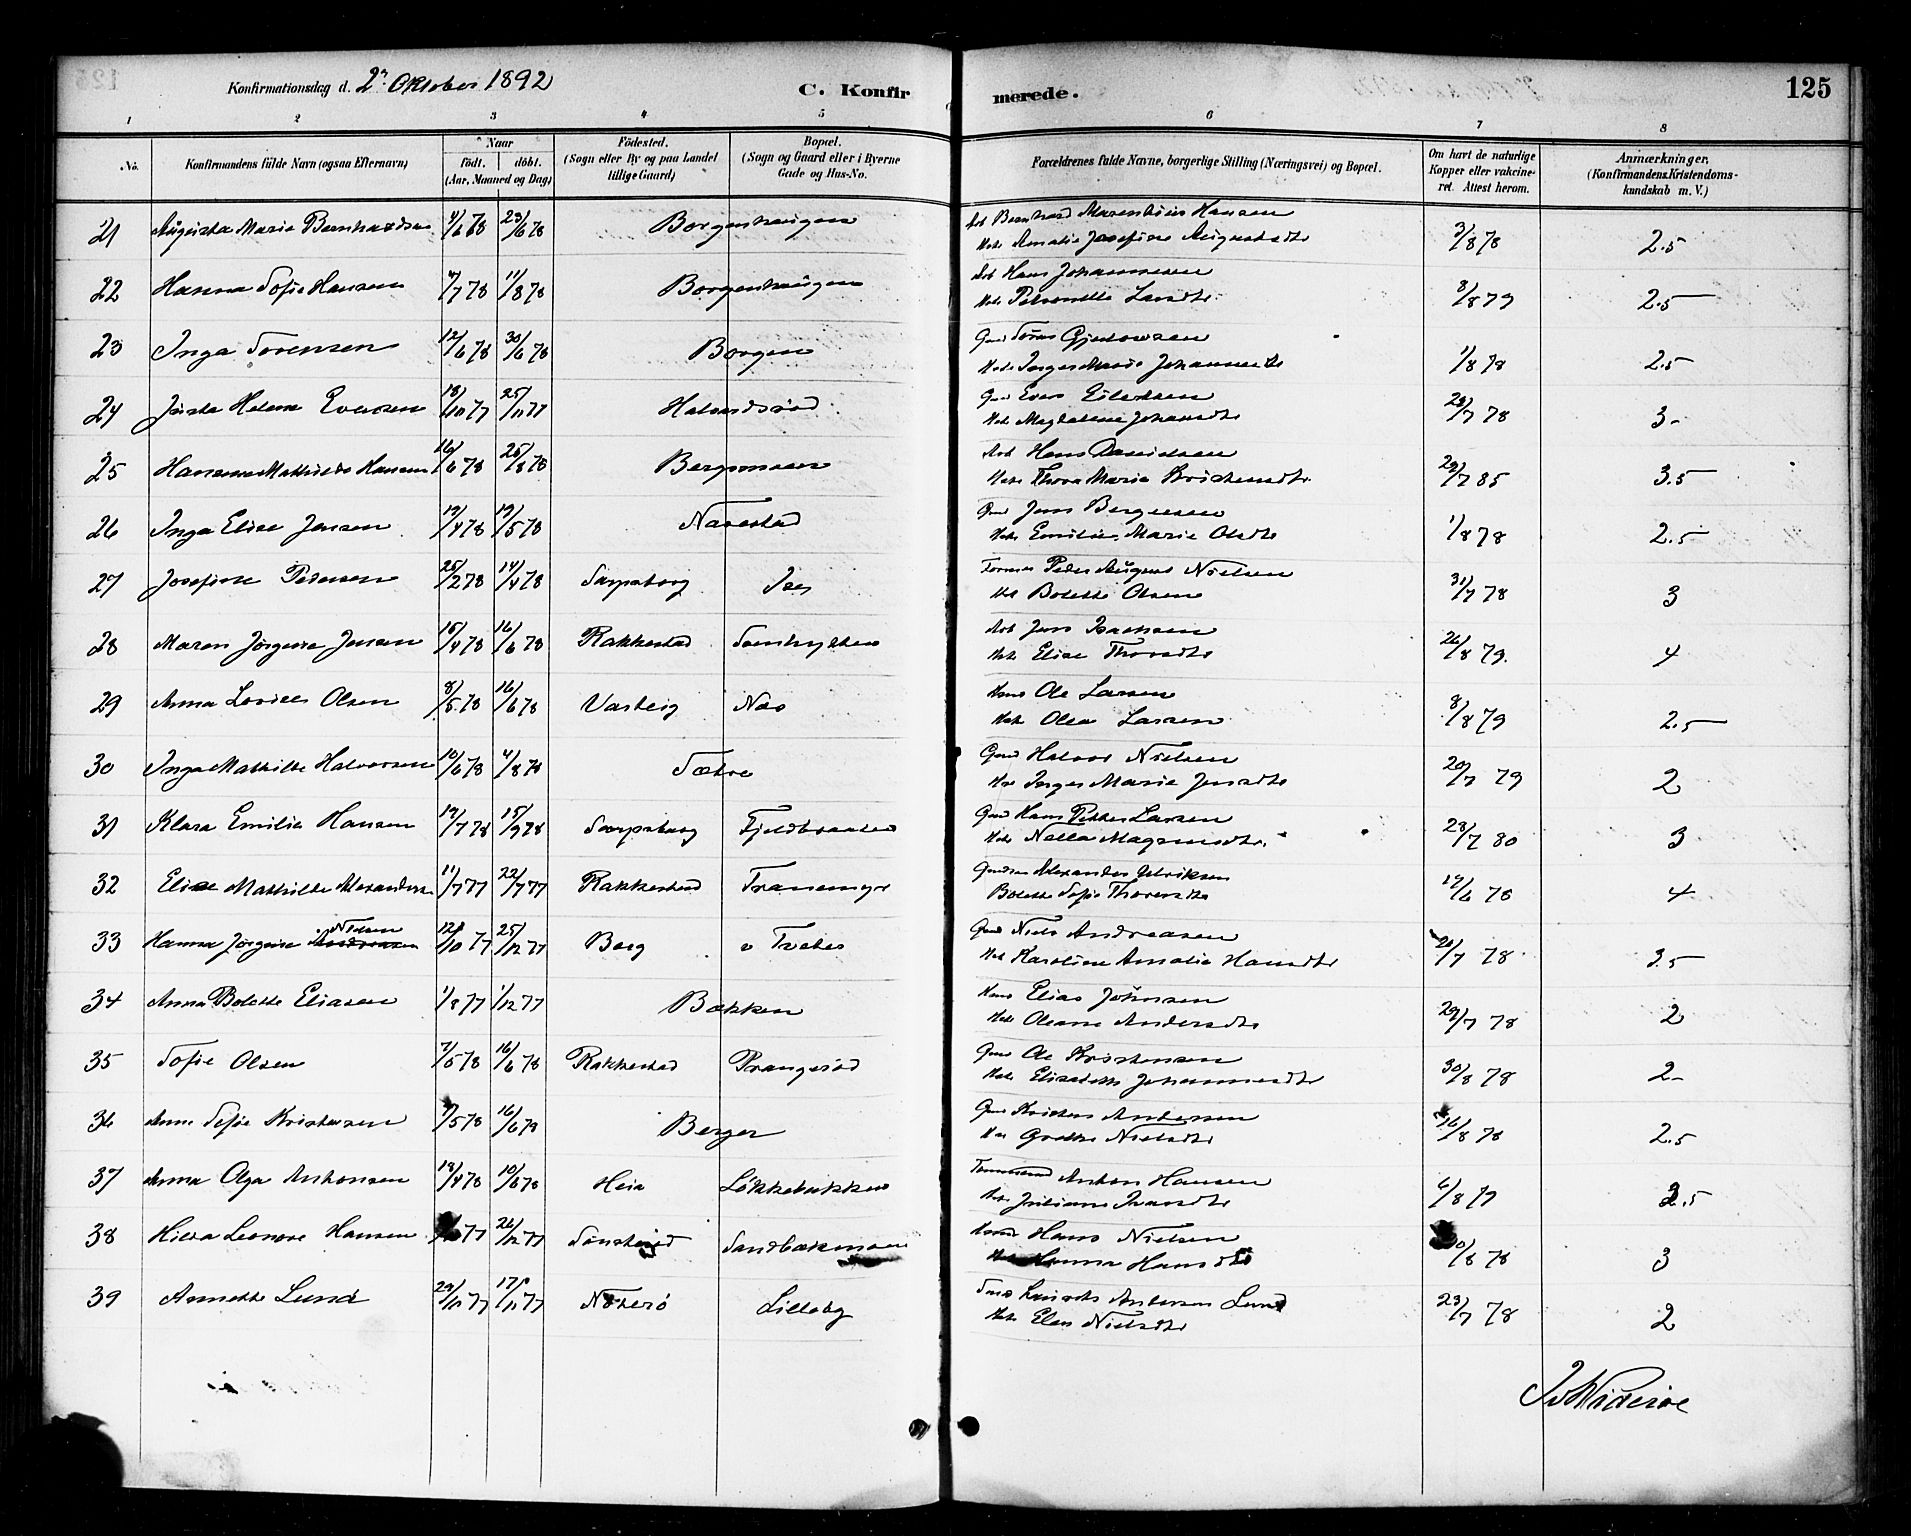 Konfirmationsdag d. 2. Oktober 1892
C. Konfirmerede.
125
1 2 3 4 5 6 7 8
No. Konfirmandens fulde Navn (ogsaa Efternavn) Naar födt. döbt. (Aar, Maaned og Dag) Födested. (Sogn eller By og paa Landet tillige Gaard) Bopæl. (Sogn og Gaard eller i Byerne Gade og Hus-No. Forældrenes fulde Navne, borgerlige Stilling (Næringsvei) og Bopæl. Om havt de naturlige Kopper eller vakcineret. Attest herom. Anmærkninger, (Konfirmandens Kristendomskundskab m. V.)
21 Augusta Marie Bernhardsen 23/6 78 Borgenhaugen Arb Bernhard Hansen
Amalie Josefine Augustsdtr 3/8 78 2.5
22 Hanna Sofie Hansen 4/7 78 11/8 78 Borgenhaugen Arb Hans Johannesen
Petronelle Larsdtr 8/8 79 2.5
23 Inga Sorensen 12/6 78 30/6 78 Borgen
Johannesdtr 1/8 78 2.5
24 Helene Eversen 18/10 77 25/11 77 Halvardsrød Gmd Evers Eilertsen
Magdalene Johansdtr 28/7 78 3-
25 Hansine Mathilde Hansen 16/6 78 25/8 78 Bergsmoen Arb Hans Davidsen
Thora Marie Kristensdtr. 29/7 85 3.5
26 Inga Elise Jensen 19/4 78 19/5 78 Navestad Gmd Jens Bergersen
Emilie Marie Olsdtr 1/8 78 2.5
27 Josefine Pedersen 25/2 78 14/4 78 Sarpsborg Ise Peder August Nielsen
Bolette Olsen 31/7 78 3
28 Maren Jørgine Jensen 15/4 78 16/6 78 Rakkestad Arb Jens Isaksen
Elise Thorsdtr 26/8 79. 4
29 Anna Lovise Olsen 8/5 78 16/6 78 Varteig Næs Ole Larsen
Olea Larsen 8/8 79 2.5
30 Inga Mathilde Halvorsen 10/6 78 4/8 78 Sætre Gmd Halvor Nielsen
Inger Marie Jensdtr 20/7 79 2
31 Klara Emilie Hansen 17/7 78 15/9 78 Sarpsborg Fjeldbraaten Gmd Hans Petter Larsen
Nella Magnusdtr. 28/7 80 3
32 Elise Mathilde Alexandersen 11/7 77 22/7 77 Rakkestad Tranemyr Alexander Ulriksen
Bolette Sofie Thorersdtr 17/6 78 4
33 Hanna Jørgine Andreasen Nielsen 12/10 77 25/12 77 Borg Tveter Gmd Niels Andreasen
Karoline Amalie Hansdtr 20/7 78 3.5
34 Anna Bolette Eliasen 1/8 77 1/12 77 Bakken Elias Johnsen
Oleane Andersdtr 29/7 78 2
35 Sofie Olsen 7/5 78 16/6 78 Rakkestad Prangerød Gmd Ole Kristensen
Elisabeth Johannesdtr 30/8 78 2-
36 Anne Sofie Kristensen 7/5 78 16/6 78 Berger Gmd Kristen Andersen
Grethe Nielsdtr 16/8 78 2.5
37 Anna Olga Antonsen 18/4 78 10/6 78 Heia Løkkebakken Anton Hansen
Juliane Ivarsdtr 6/8 79 2.5
38 Hilda Leonore Hansen 77 26/12 77 Sandbækmoen Hans Nielsen
Hanna Hansdtr 10/8 78 3
39 Annette Lund 29/10 77 17/11 77 Nøterø Lilleby Andersen Lund
Elen Nielsdtr 23/7 78 2